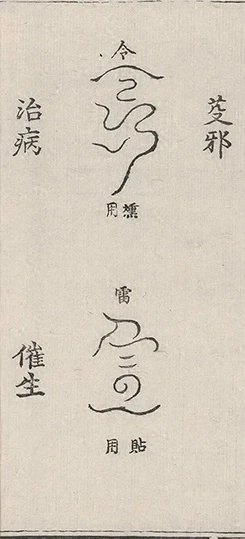 芟邪
令
燻用
雷
貼用
治病
催生